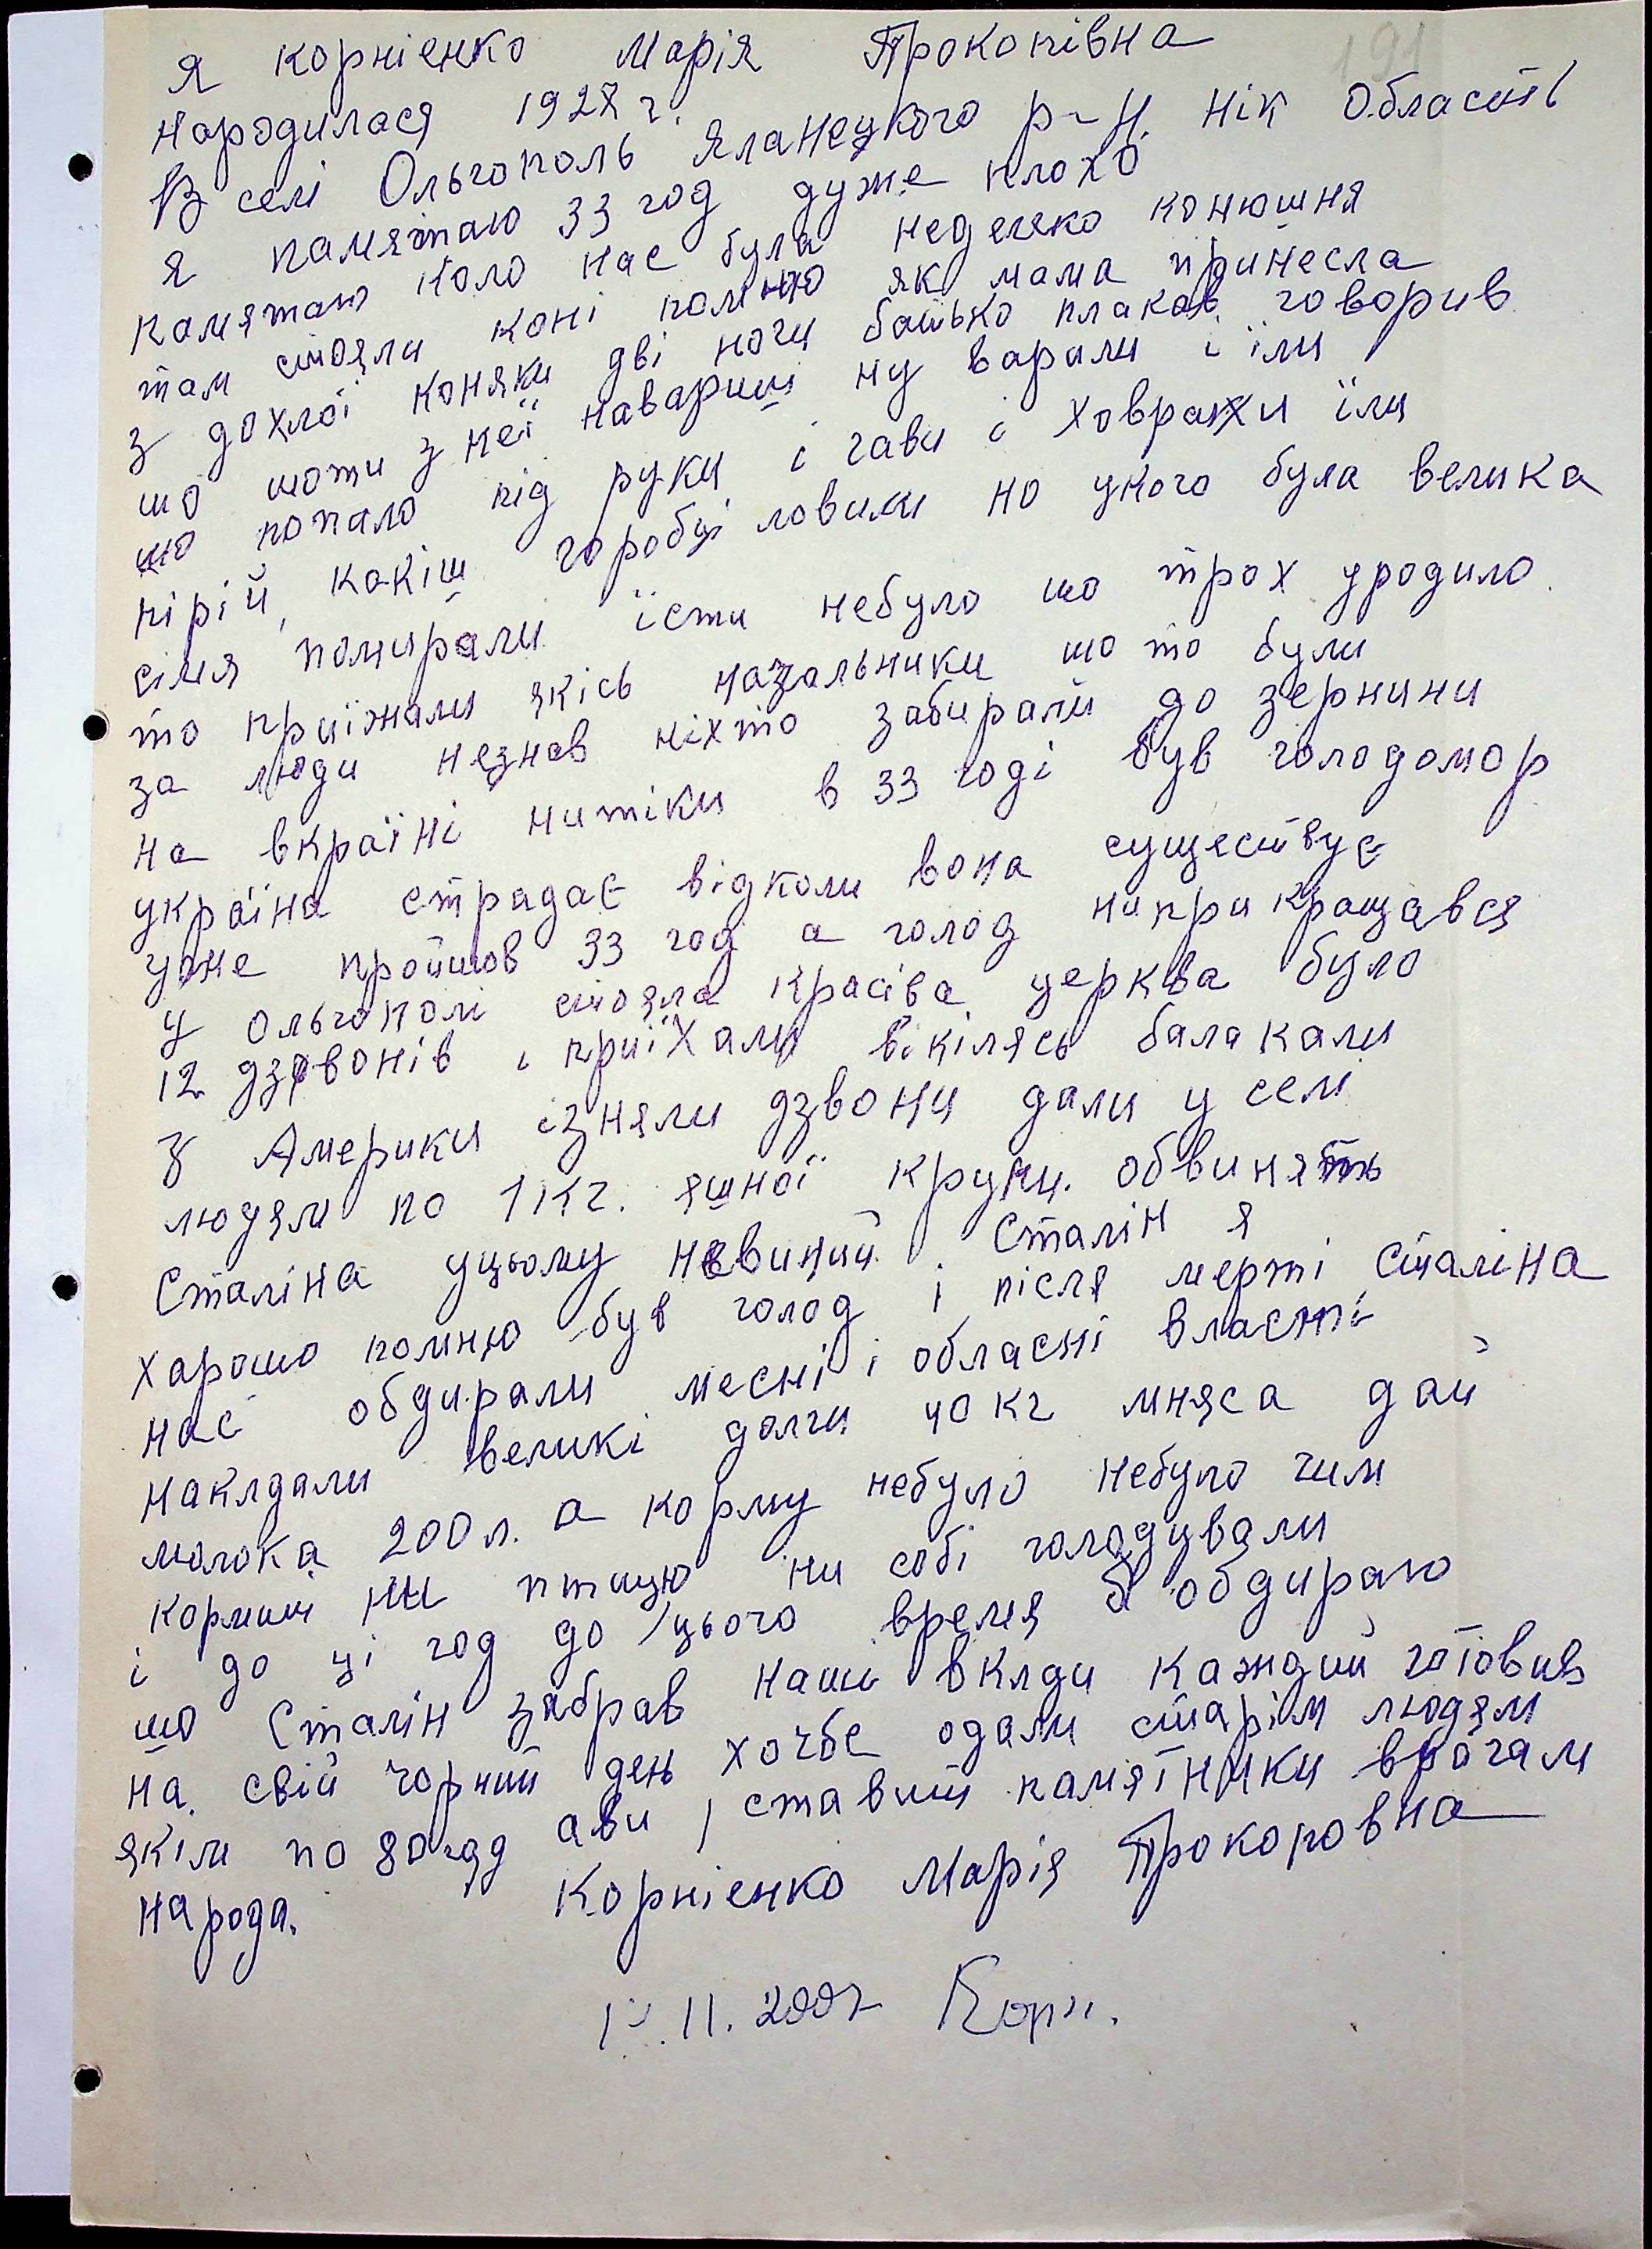 191
Я Корніенко Марія Прокопівна
народилася 1927 г.
В селі Ольгополь Яланецкого р-н. Нік Область
я памятаю 33 год дуже плохо
памятаю коло нас була недалеко конюшня
там стояли коні помню як мама принесла
з дохлої коняки дві ноги батько плакав говорив
шо шоти з неї навариш ну варили і їли
шо попало під руки і гави і ховрахи їли
пірій, какіш горобці ловили но укого була велика
сімя помирали їсти небуло шо трох уродило
то приїжали якісь назальники шо то були
за люди незнав ніхто забирали до зернини
на вкраїні нитіки в 33 годі був голодомор
україна страдає відколи вона существує
уже пройшов 33 год а голод никрикращався
у Ольгополі стояла красіва церква було
12 дзвонів і приїхали вікілясь балакали
з Америки ізняли дзвони дали у селі
людям по 1 кг. яшної крупи. обвинять
Сталіна уцьому невиний Сталін я
хорошо помню був голод і після мерті Сталіна
нас обдирали месні і обласні власті
наклдали великі долги 40 кг мняса дай
молока 200 л. а корму небуло небуло чим
кормит ни птицю ни собі голодували
і до ці год до цього время обдираю
шо Сталін забрав наши вклди каждий готовив
на свій чорний день хочбе одали старім людям
якім по 80 год ави ставит памятники врагам
народа. Корніенко Марія Прокоповна
11. 2007 Корн.